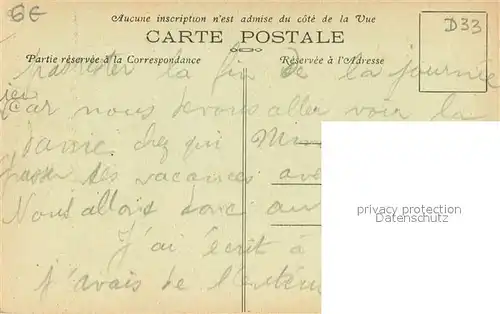 6€
Aucune inscription n'est admise du côté de la Vue
D33
CARTE POSTALE
Partie réservée à la Correspondance
Réservée à l'Adresse
la fin de la journée
ici
Car nous devons aller voir la
dame chez qui
passer ses vacances
Nous allons donc au
J'ai écrit à
J'avais de l'
privacy protection
Datenschutz